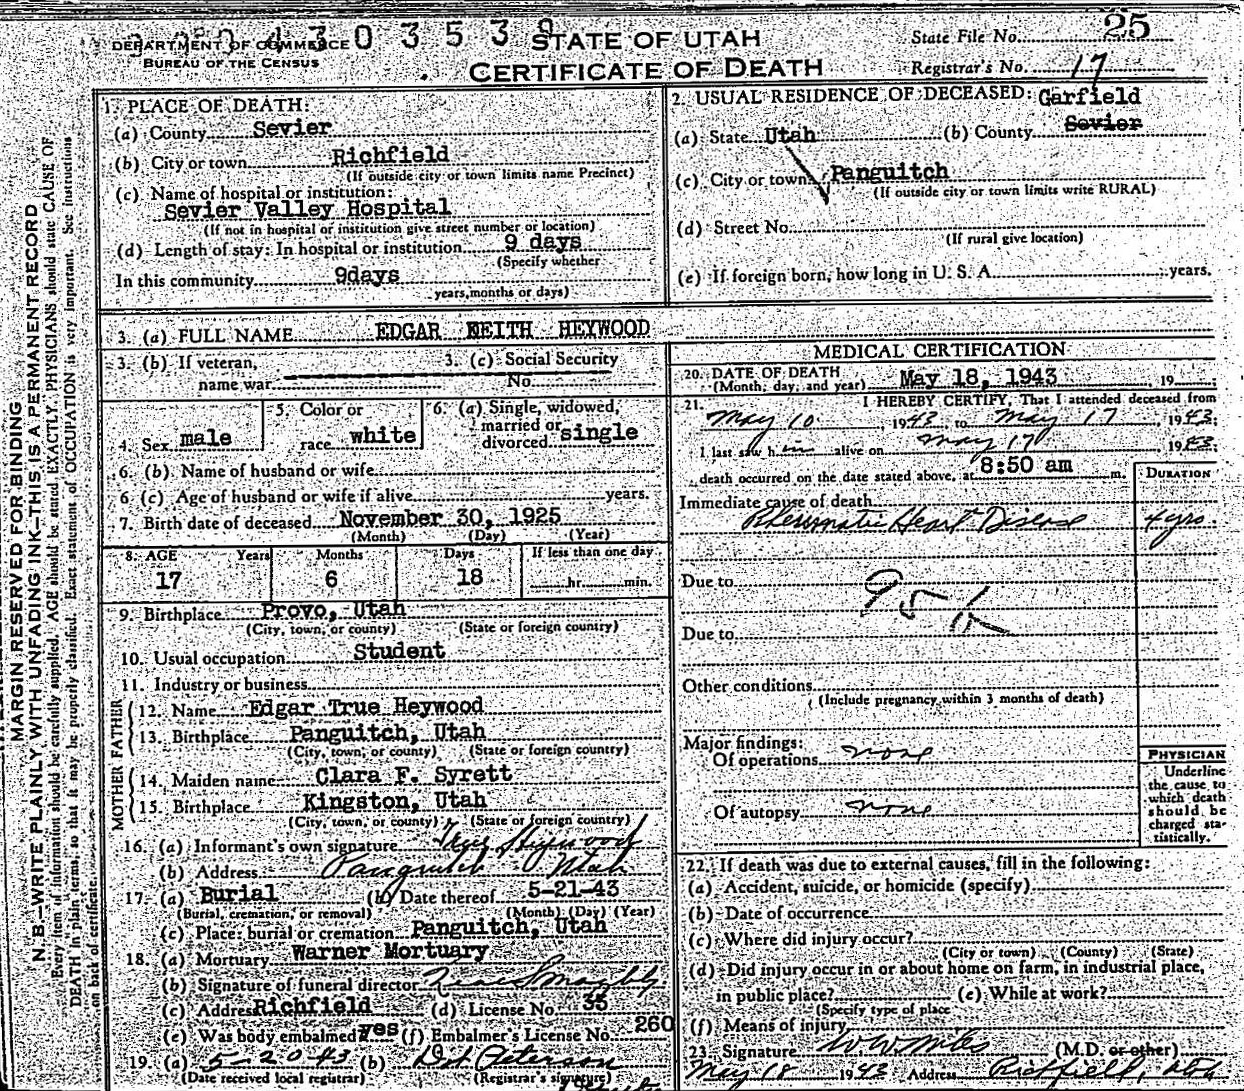 0 4 3 0 3 5 3 9
DEPARTMENT OF COMMERCE
BUREAU OF THE CENSUS
STATE OF UTAH
CERTIFICATE OF DEATH
State File No. 25
Registrar's No. 17
MARGIN RESERVED FOR BINDING
N. B.—WRITE PLAINLY WITH UNFADING INK—THIS IS A PERMANENT RECORD
Every item of information should be carefully supplied. AGE should be stated EXACTLY. PHYSICIANS should state CAUSE OF
DEATH in plain terms, so that it may be properly classified. Exact statement of OCCUPATION is very important. See instructions
on back of certificate.
1. PLACE OF DEATH:
(a) County Sevier
(b) City or town Richfield
(If outside city or town limits name Precinct)
(c) Name of hospital or institution:
Sevier Valley Hospital
(If not in hospital or institution give street number or location)
(d) Length of stay: In hospital or institution 9 days
(Specify whether
In this community 9days
years, months or days)
2. USUAL RESIDENCE OF DECEASED: Garfield
(a) State Utah (b) County Sevier
(c) City or town Panguitch
(If outside city or town limits write RURAL)
(d) Street No.
(If rural give location)
(e) If foreign born, how long in U. S. A. years.
3. (a) FULL NAME EDGAR KEITH HEYWOOD
3. (b) If veteran, 3. (c) Social Security
name war No.
4. Sex male
5. Color or
race white
6. (a) Single, widowed,
married or
divorced single
6. (b) Name of husband or wife
6 (c) Age of husband or wife if alive years.
7. Birth date of deceased November 30, 1925
(Month) (Day) (Year)
8. AGE Years Months Days If less than one day
17 6 18 hr. min.
9. Birthplace Provo, Utah
(City, town, or county) (State or foreign country)
10. Usual occupation Student
11. Industry or business
FATHER
12. Name Edgar True Heywood
13. Birthplace Panguitch, Utah
(City, town, or county) (State or foreign country)
MOTHER
14. Maiden name Clara F. Syrett
15. Birthplace Kingston, Utah
(City, town, or county) (State or foreign country)
16. (a) Informant's own signature Heywood
(b) Address Panguitch Utah
17. (a) Burial (b) Date thereof 5-21-43
(Burial, cremation, or removal) (Month) (Day) (Year)
(c) Place: burial or cremation Panguitch, Utah
18. (a) Mortuary Warner Mortuary
(b) Signature of funeral director
(c) Address Richfield (d) License No. 35
(e) Was body embalmed? yes (f) Embalmer's License No. 260
19. (a) 5-20-43 (b) Peterson
(Date received local registrar) (Registrar's signature)
MEDICAL CERTIFICATION
20. DATE OF DEATH
(Month, day, and year) May 18, 1943, 19
21. I HEREBY CERTIFY, That I attended deceased from
May 10, 1943, to May 17, 1943;
I last saw him alive on May 17 1943;
death occurred on the date stated above, at 8:50 am m.
DURATION
Immediate cause of death
Rheumatic Heart Disease 4 yrs.
Due to
95
Due to
Other conditions
(Include pregnancy within 3 months of death)
Major findings:
Of operations none
Of autopsy none
PHYSICIAN
Underline
the cause to
which death
should be
charged sta-
tistically.
22. If death was due to external causes, fill in the following:
(a) Accident, suicide, or homicide (specify)
(b) Date of occurrence
(c) Where did injury occur?
(City or town) (County) (State)
(d) Did injury occur in or about home on farm, in industrial place,
in public place? (e) While at work?
(Specify type of place
(f) Means of injury
23. Signature W W Miles (M.D. or other)
May 18 1943 Address Richfield, Utah